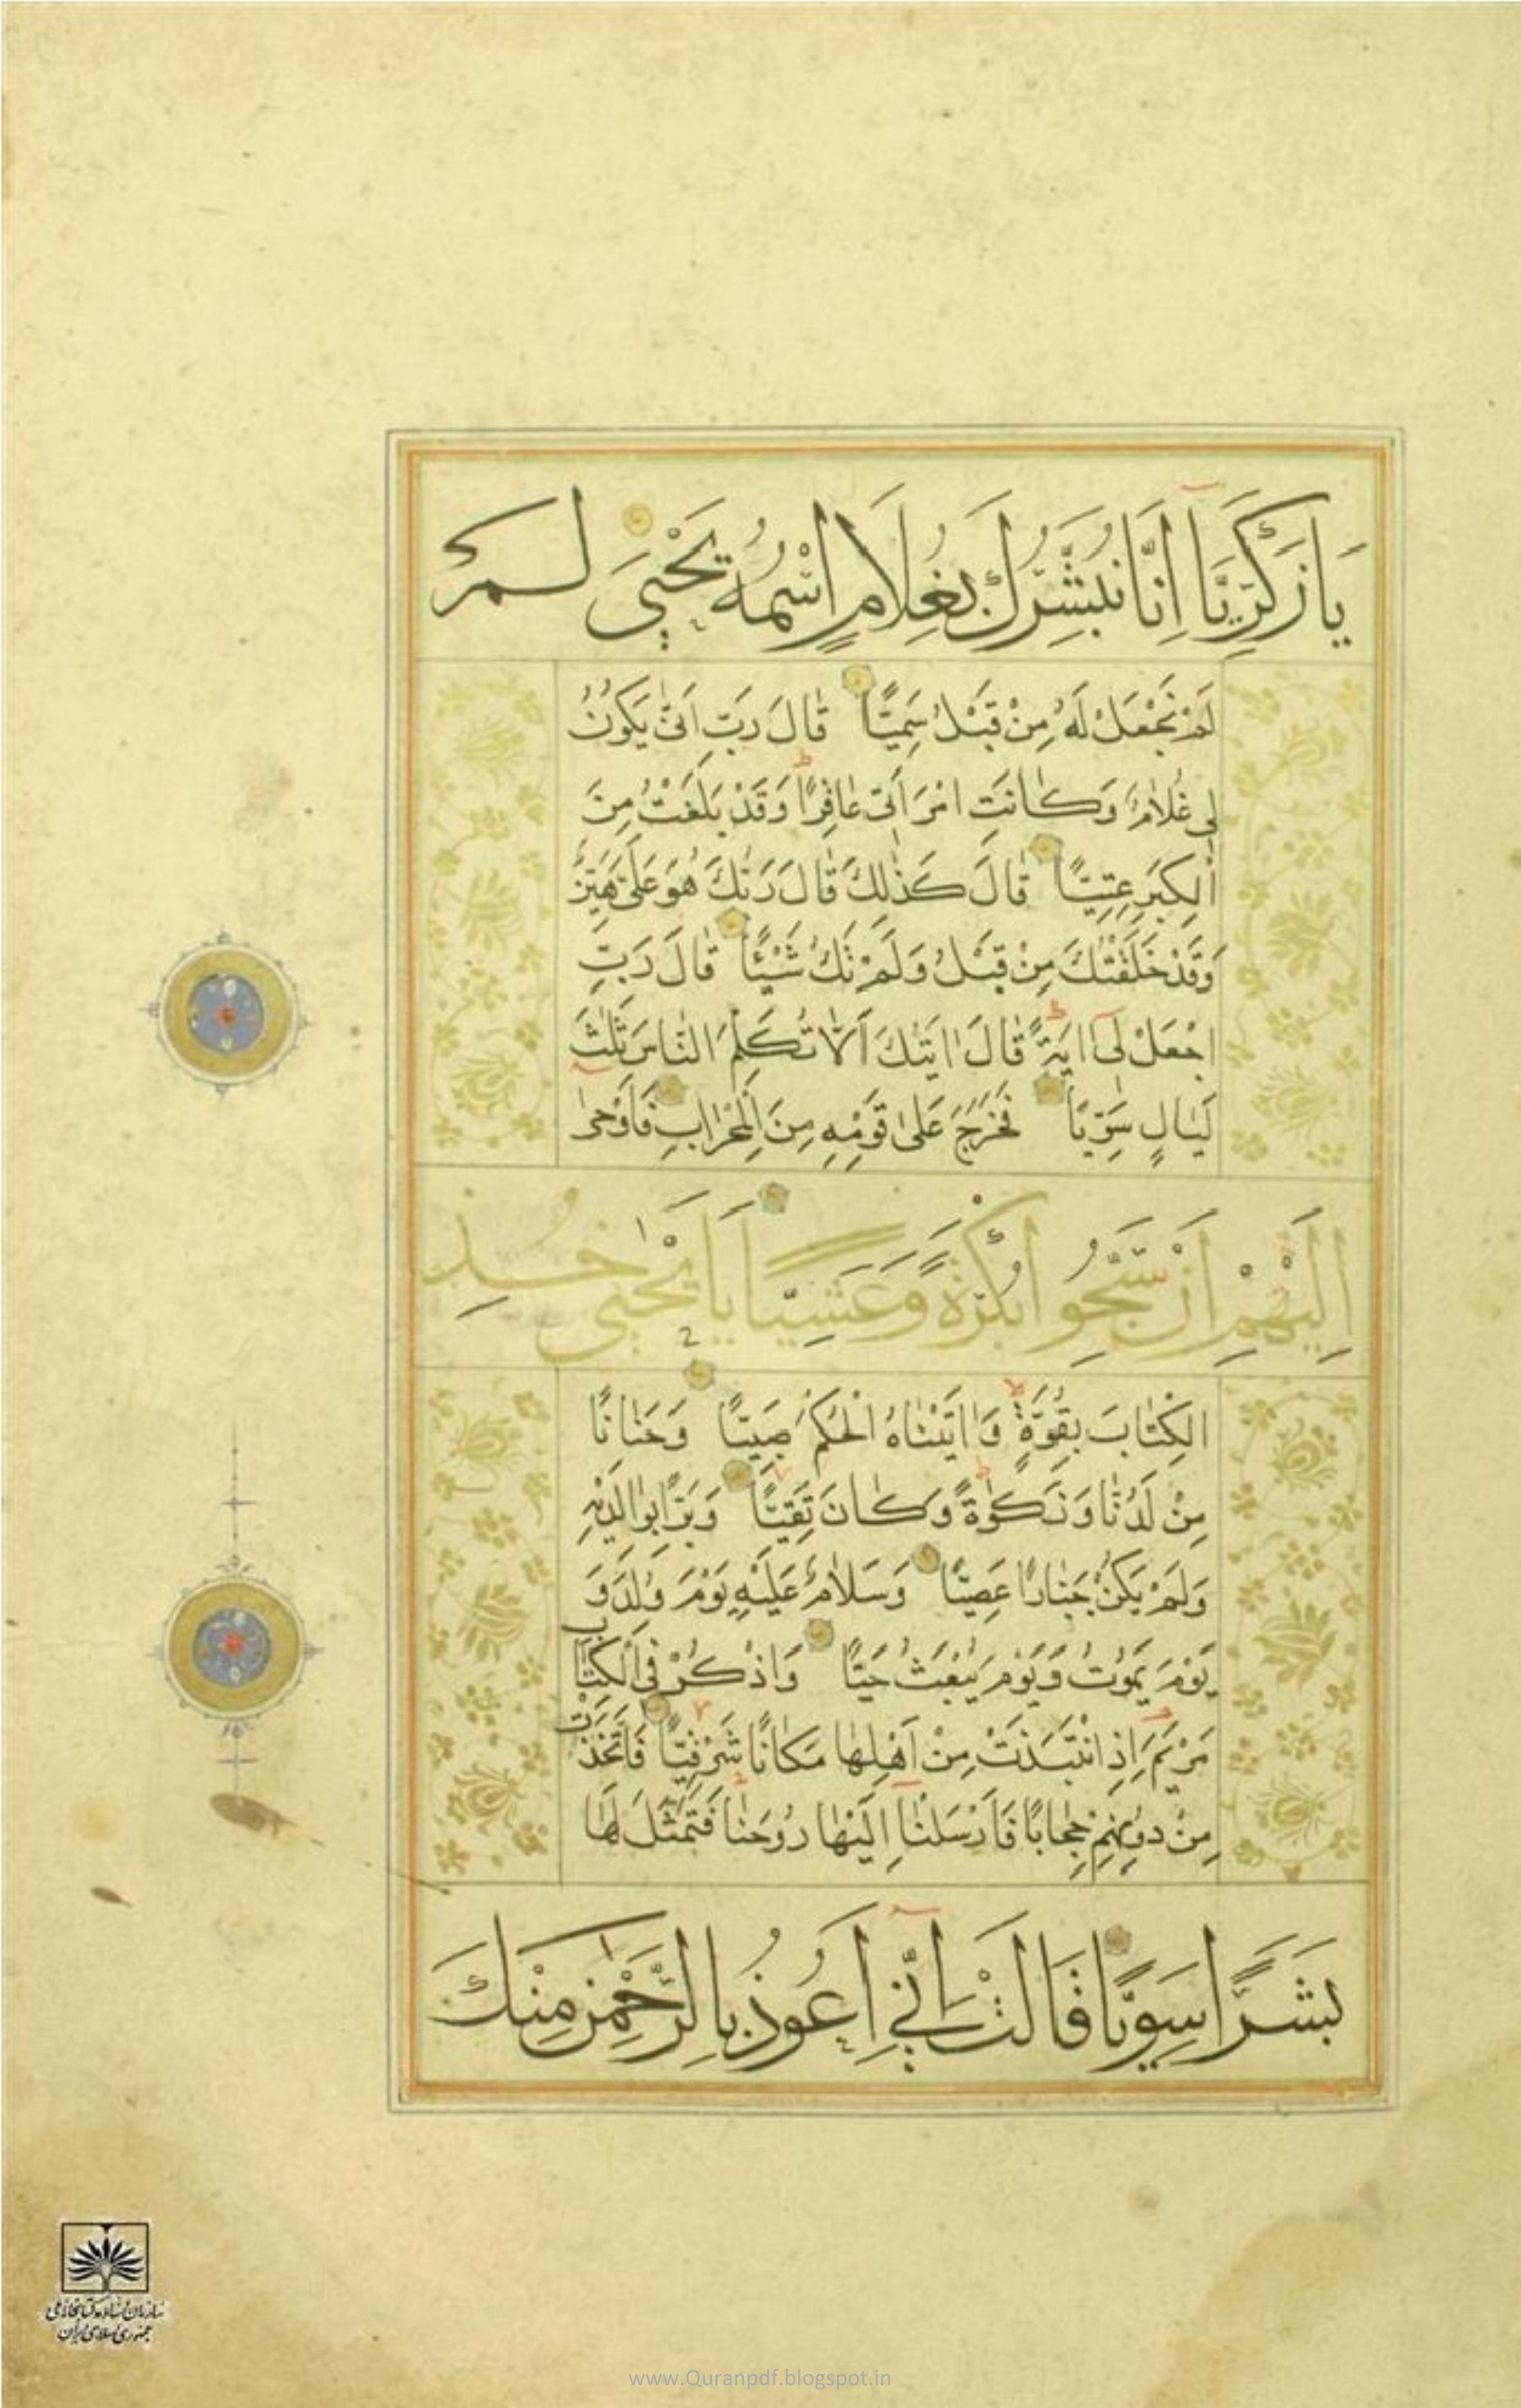 يَا زَكَرِيَّآ اِنَّا نُبَشِّرُكَ بِغُلَامٍ اسْمُهُ يَحْيٰى لَمْ
لَمْ نَجْعَلْ لَهُ مِنْ قَبْلُ سَمِيًّا قَالَ رَبِّ اَنّٰى يَكُونُ
لِى غُلَامٌ وَكَانَتِ امْرَاَتِى عَاقِرًا وَقَدْ بَلَغْتُ مِنَ
الْكِبَرِ عِتِيًّا قَالَ كَذٰلِكَ قَالَ رَبُّكَ هُوَ عَلَىَّ هَيِّنٌ
وَقَدْ خَلَقْتُكَ مِنْ قَبْلُ وَلَمْ تَكُ شَيْئًا قَالَ رَبِّ
اجْعَلْ لِىٓ اٰيَةً قَالَ اٰيَتُكَ اَلَّا تُكَلِّمَ النَّاسَ ثَلٰثَ
لَيَالٍ سَوِيًّا فَخَرَجَ عَلٰى قَوْمِهِ مِنَ الْمِحْرَابِ فَاَوْحٰى
اِلَيْهِمْ اَنْ سَبِّحُوا بُكْرَةً وَعَشِيًّا يَا يَحْيٰى خُذِ
الْكِتَابَ بِقُوَّةٍ وَاٰتَيْنَاهُ الْحُكْمَ صَبِيًّا وَحَنَانًا
مِنْ لَدُنَّا وَزَكٰوةً وَكَانَ تَقِيًّا وَبَرًّا بِوَالِدَيْهِ
وَلَمْ يَكُنْ جَبَّارًا عَصِيًّا وَسَلَامٌ عَلَيْهِ يَوْمَ وُلِدَ وَ
يَوْمَ يَمُوتُ وَيَوْمَ يُبْعَثُ حَيًّا وَاذْكُرْ فِى الْكِتَابِ
مَرْيَمَ اِذِ انْتَبَذَتْ مِنْ اَهْلِهَا مَكَانًا شَرْقِيًّا فَاتَّخَذَتْ
مِنْ دُونِهِمْ حِجَابًا فَاَرْسَلْنَآ اِلَيْهَا رُوحَنَا فَتَمَثَّلَ لَهَا
بَشَرًا سَوِيًّا قَالَتْ اِنِّىٓ اَعُوذُ بِالرَّحْمٰنِ مِنْكَ
سازمان اسناد و کتابخانه ملی
جمهوری اسلامی ایران
www.Quranpdf.blogspot.in